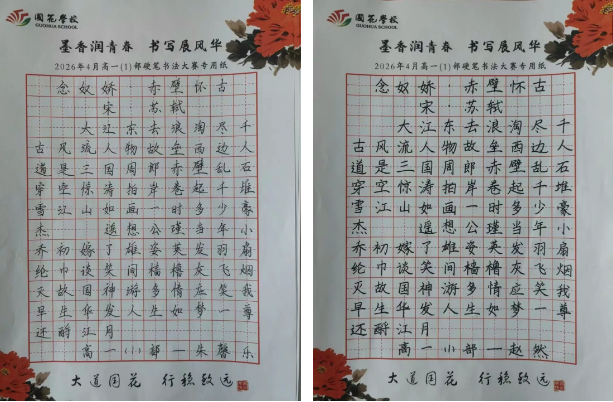 國花學校
GUOHUA SCHOOL
墨香润青春 书写展风华
2026年4月高一(1)部硬笔书法大赛专用纸
念奴娇·赤壁怀古
宋·苏轼
大江东去浪淘尽千
古风流人物故垒西边人
道是三国周郎赤壁乱石
穿空惊涛拍岸卷起千堆
雪江山如画一时多少豪
杰 遥想公瑾当年小
乔初嫁了雄姿英发羽扇
纶巾谈笑间樯橹灰飞烟
灭故国神游多情应笑我
早生华发人生如梦一尊
还酹江月
高一(1)部—朱馨乐
大道国花 行稳致远
國花學校
GUOHUA SCHOOL
墨香润青春 书写展风华
2026年4月高一(1)部硬笔书法大赛专用纸
念奴娇·赤壁怀古
宋·苏轼
大江东去浪淘尽千
古风流人物故垒西边人
道是三国周郎赤壁乱石
穿空惊涛拍岸卷起千堆
雪江山如画一时多少豪
杰 遥想公瑾当年小
乔初嫁了雄姿英发羽扇
纶巾谈笑间樯橹灰飞烟
灭故国神游多情应笑我
早生华发人生如梦一尊
还酹江月
高一(1)部—赵然
大道国花 行稳致远